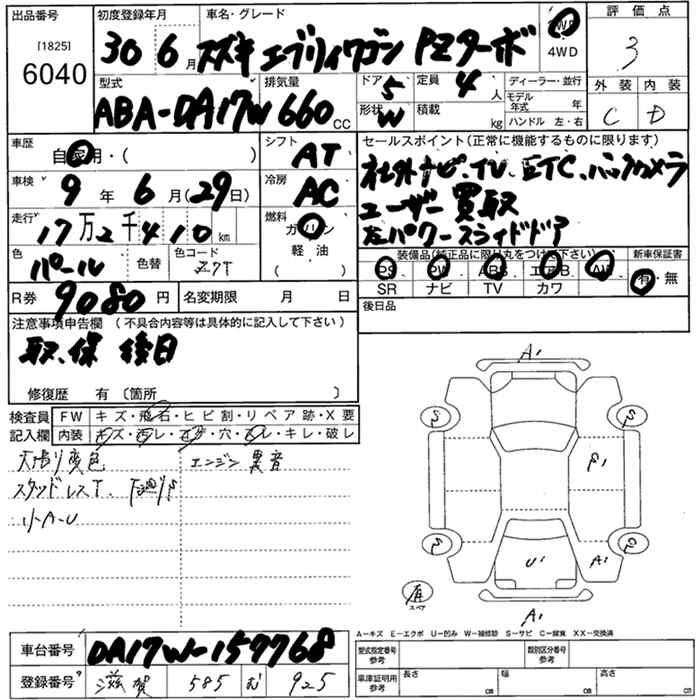 出品番号 初度登録年月 車名・グレード 2WD 評価点
[1825] 30 6月 スズキ エブリィワゴン PZターボ 4WD 3
6040
型式 排気量 ドア 5 定員 4人 ディーラー・並行 外装 内装
ABA-DA17W 660cc 形状 W 積載 kg モデル年式 年 C D
ハンドル 左・右
車歴 自家用・( ) シフト AT セールスポイント(正常に機能するものに限ります)
車検 9年 6月(29日) 冷房 AC 社外ナビ、TV、ETC、バックカメラ
走行 17万2千410km 燃料 ガソリン ユーザー買取
軽油 左パワースライドドア
色 パール 色替 色コード Z7T ( ) 装備品(純正品に限り丸をつけて下さい) 新車保証書
R券 9080円 名変期限 月 日 PS PW ABS エアB AW 有・無
SR ナビ TV カワ
注意事項申告欄(不具合内容等は具体的に記入して下さい) 後日品
取、保 後日
修復歴 有〔箇所 〕
検査員 FW キズ・飛石・ヒビ割・リペア跡・X要
記入欄 内装 キズ・汚レ・コゲ・穴・スレ・キレ・破レ
天張り変色 エンジン異音
スタッドレスT、下廻りS
小A-U
A1
S S
P1
S S
U1 A1
有
スペア
A1
A-キズ E-エクボ U-凹み W-補修跡 S-サビ C-腐食 XX-交換済
車台番号 DA17W-157768 型式指定番号 参考 類別区分番号 参考
登録番号 滋賀 585 む 925 車庫証明用 参考 長さ cm 幅 cm 高さ cm